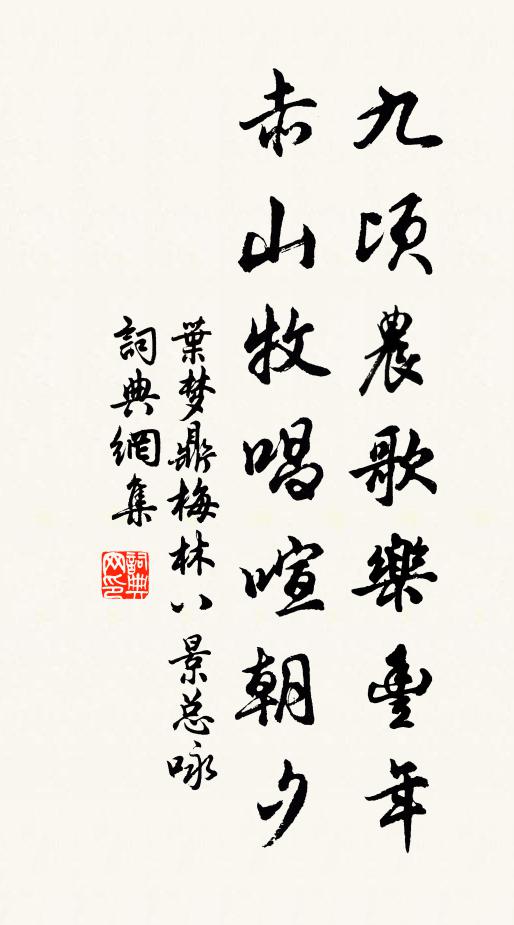 九頃農歌樂豐年
赤山牧唱喧朝夕
葉梦鼎梅林八景总咏
詞典網集
詞典網印